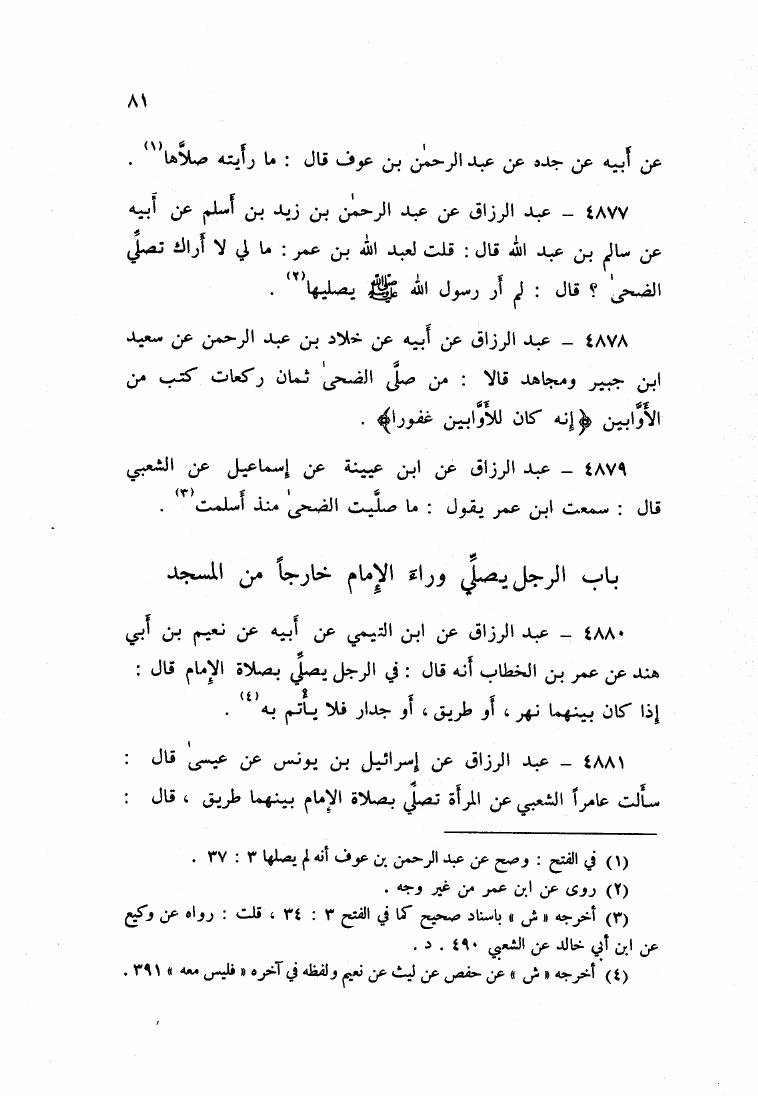 ٨١
عن أبيه عن جده عن عبد الرحمٰن بن عوف قال : ما رأيته صلَّاها(١) .
٤٨٧٧ – عبد الرزاق عن عبد الرحمٰن بن زيد بن أسلم عن أبيه
عن سالم بن عبد الله قال : قلت لعبد الله بن عمر : ما لي لا أراك تصلِّي
الضحىٰ ؟ قال : لم أر رسول الله ﷺ يصليها(٢) .
٤٨٧٨ – عبد الرزاق عن أبيه عن خلاد بن عبد الرحمن عن سعيد
ابن جبير ومجاهد قالا : من صلَّى الضحىٰ ثمان ركعات كتب من
الأوَّابين ﴿إنه كان للأوَّابين غفورا﴾ .
٤٨٧٩ – عبد الرزاق عن ابن عيينة عن إسماعيل عن الشعبي
قال : سمعت ابن عمر يقول : ما صلَّيت الضحىٰ منذ أسلمت(٣) .
باب الرجل يصلِّي وراء الإمام خارجاً من المسجد
٤٨٨٠ – عبد الرزاق عن ابن التيمي عن أبيه عن نعيم بن أبي
هند عن عمر بن الخطاب أنه قال : في الرجل يصلِّي بصلاة الإمام قال :
إذا كان بينهما نهر ، أو طريق ، أو جدار فلا يأتم به(٤) .
٤٨٨١ – عبد الرزاق عن إسرائيل بن يونس عن عيسىٰ قال :
سألت عامراً الشعبي عن المرأة تصلِّي بصلاة الإمام بينهما طريق ، قال :
(١) في الفتح : وصح عن عبد الرحمن بن عوف أنه لم يصلها ٣ : ٣٧ .
(٢) روى عن ابن عمر من غير وجه .
(٣) أخرجه « ش » باسناد صحيح كما في الفتح ٣ : ٣٤ ، قلت : رواه عن وكيع
عن ابن أبي خالد عن الشعبي ٤٩٠ . د .
(٤) أخرجه « ش » عن حفص عن ليث عن نعيم ولفظه في آخره « فليس معه » ٣٩١ .